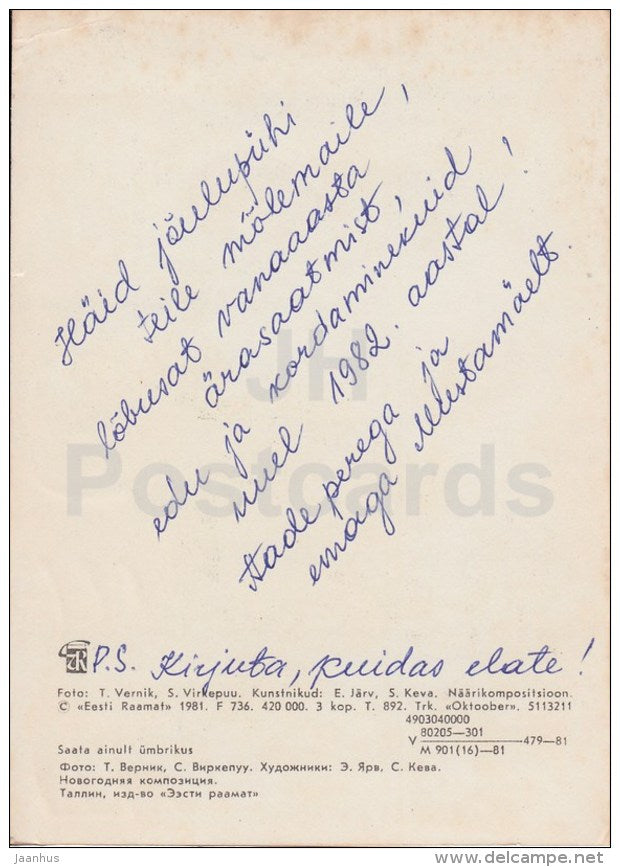 Häid jõulupühi
teile mõlemaile,
lõbusat vanaaasta
ärasaatmist,
edu ja kordaminekuid
uuel 1982. aastal!
Aade perega ja
emaga Mustamäelt.
JH
Postcards
P.S. Kirjuta, kuidas elate!
Foto: T. Vernik, S. Virkepuu. Kunstnikud: E. Järv, S. Keva. Näärikompositsioon.
© «Eesti Raamat» 1981. F 736. 420 000. 3 kop. T. 892. Trk. «Oktoober». 5113211
4903040000
V 80205—301 / M 901(16)—81 479—81
Saata ainult ümbrikus
Фото: Т. Верник, С. Виркепуу. Художники: Э. Ярв, С. Кева.
Новогодняя композиция.
Таллин, изд-во «Ээсти раамат»
jaanhus
www.delcampe.net